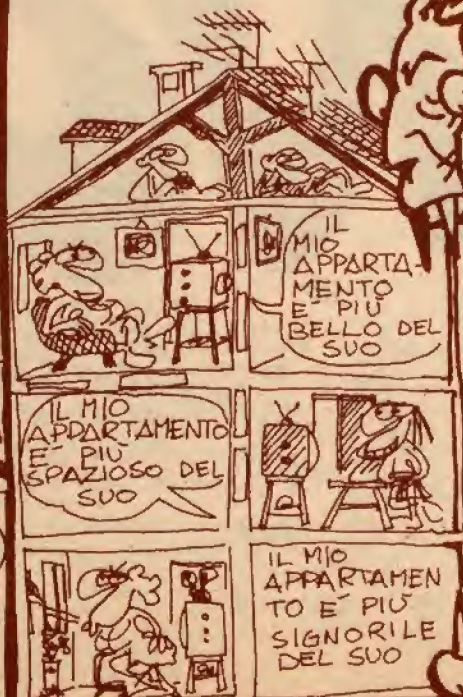 IL
MIO
APPARTA-
MENTO
E' PIÙ
BELLO DEL
SUO
IL MIO
APPARTAMENTO
E' PIÙ
SPAZIOSO DEL
SUO
IL MIO
APPARTAMEN
TO E' PIÙ
SIGNORILE
DEL SUO